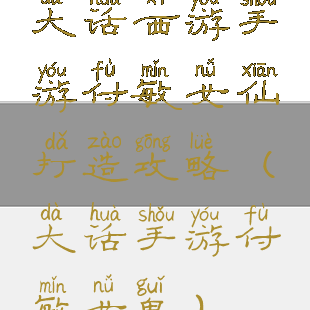 dà huà xī yóu shǒu
大话西游手
yóu fù mǐn nǚ xiān
游付敏女仙
dǎ zào gōng lüè
打造攻略（
dà huà shǒu yóu fù
大话手游付
mǐn nǚ guǐ
敏女鬼）